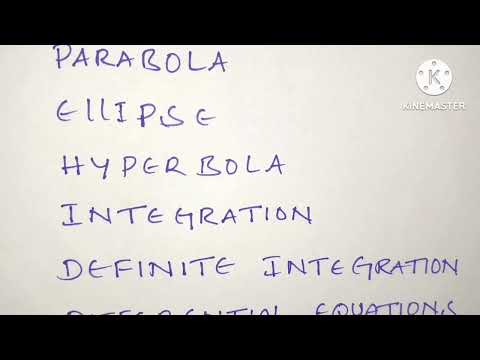 PARABOLA
K
KINEMASTER
EllIPSE
HYPERBOLA
INTEGRATION
DEFINITE INTEGRATION
EQUATIONS